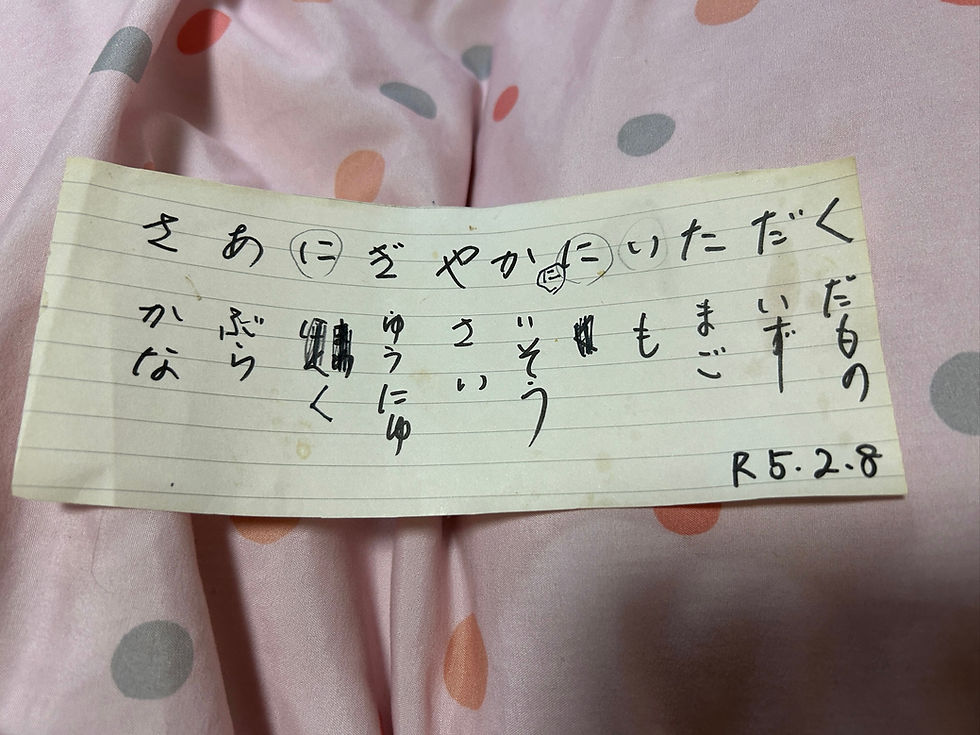 さあにぎやかににいただく
かな
ぶら
く
ゅうにゅ
さい
いそう
も
まご
いず
だもの
R5.2.8